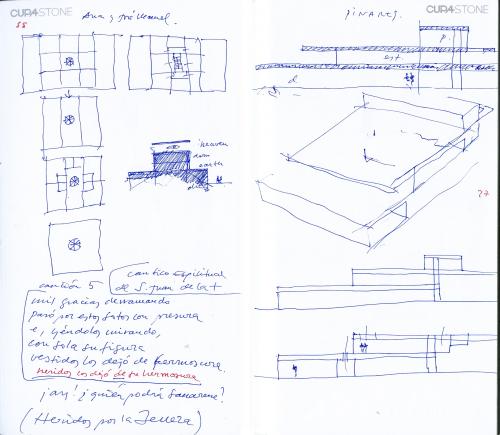 CUP4STONE
Ana y José Manuel.
58
heaven
dom
earth
canción 5
cantico espiritual
de S. Juan de la +
mil gracias derramando
pasó por estos sotos con presura
e, yéndolos mirando,
con sola su figura
vestidos los dejó de hermosura.
heridos los dejó de su hermosura
¡ay! ¿quién podrá sanarme?
(Heridos por la
PINARES.
CUP4STONE
p.
est.
d